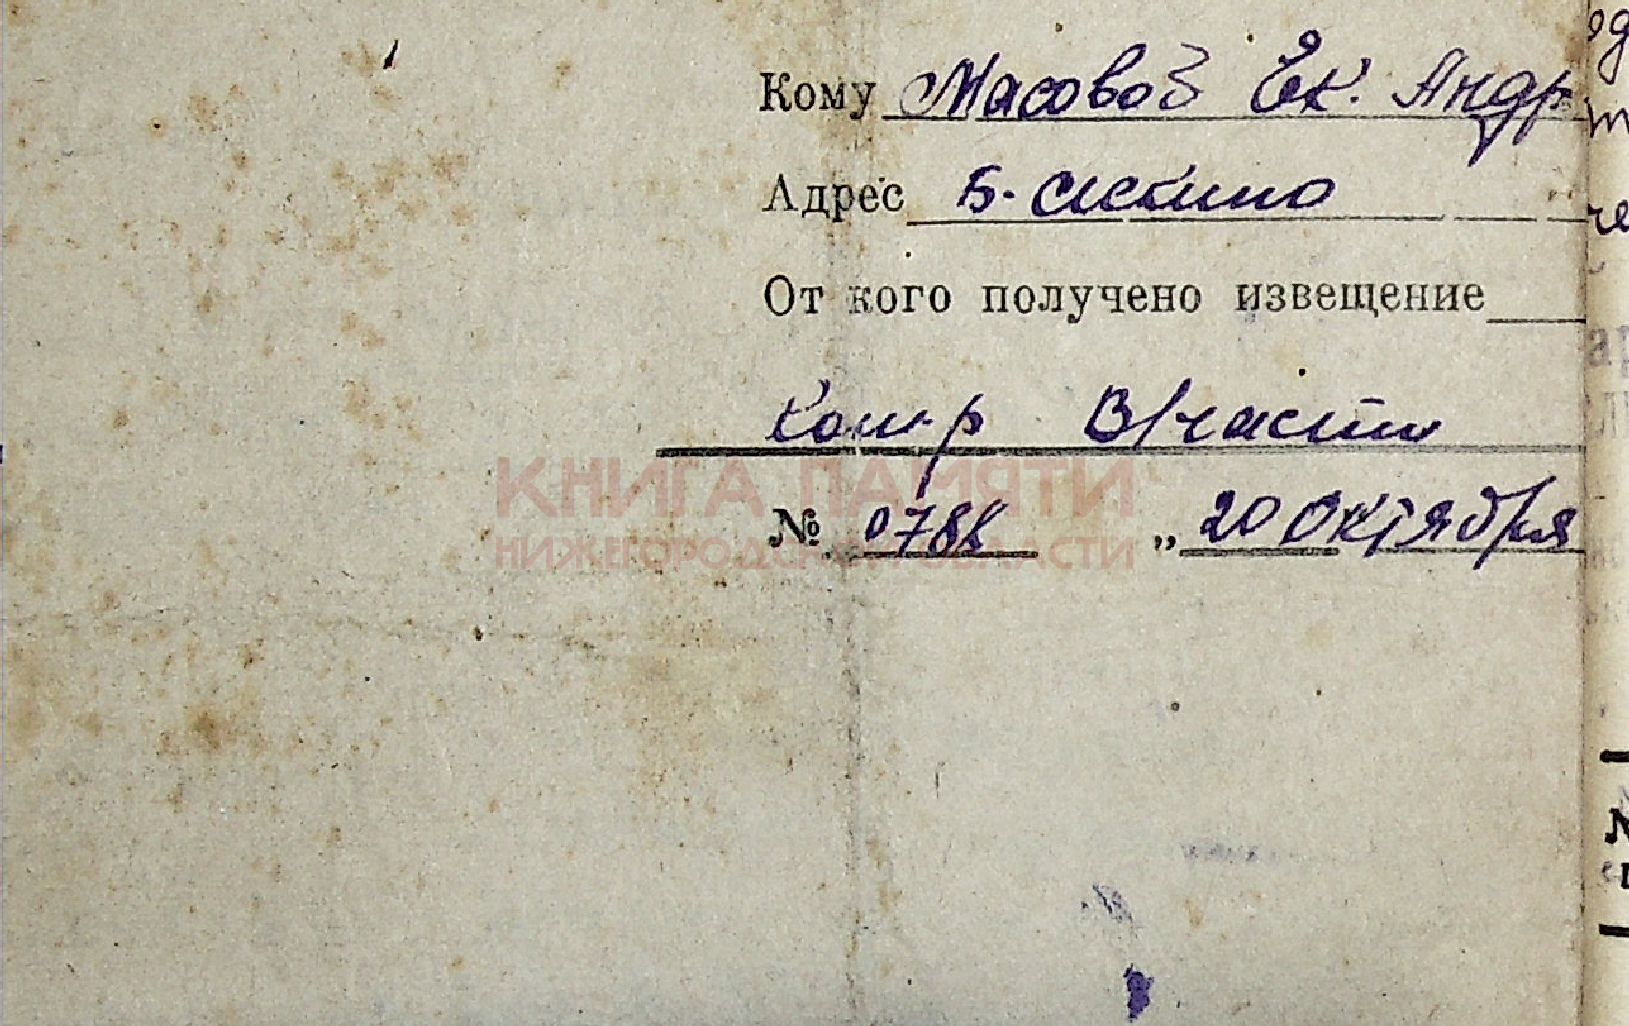 Кому Масовой Ек. Андр
Адрес Б-
От кого получено извещение
Ком-р В/части
КНИГА ПАМЯТИ
№ 0788 „20 Октября
НИЖЕГОРОДСКОЙ ОБЛАСТИ